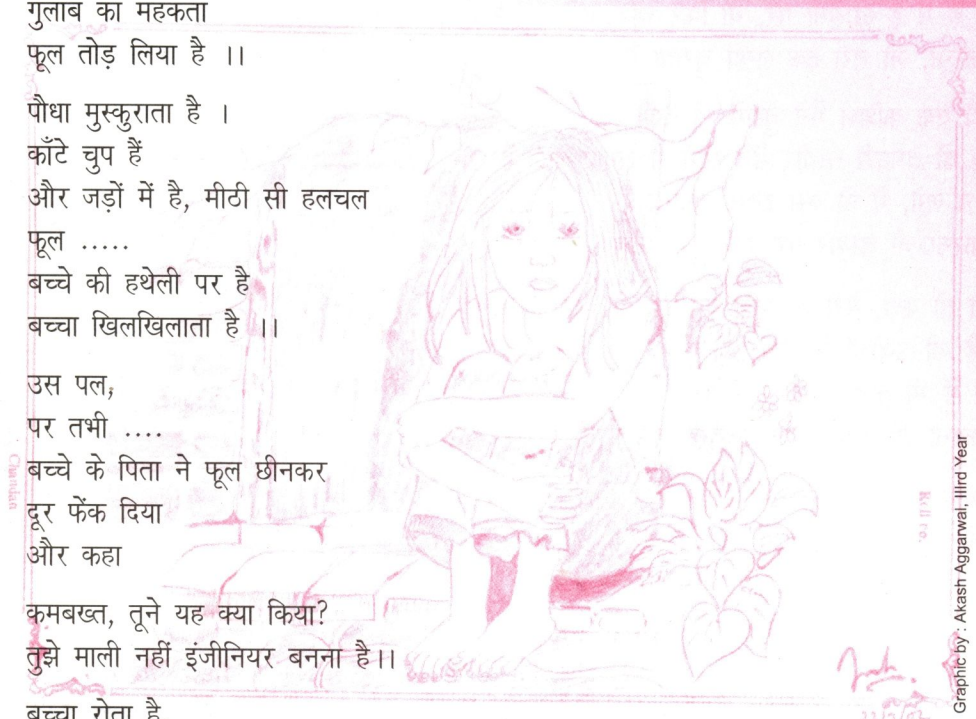 गुलाब का महकता
फूल तोड़ लिया है ।।
पौधा मुस्कुराता है ।
काँटे चुप हैं
और जड़ों में है, मीठी सी हलचल
फूल .....
बच्चे की हथेली पर है
बच्चा खिलखिलाता है ।।
उस पल,
पर तभी ....
बच्चे के पिता ने फूल छीनकर
दूर फेंक दिया
और कहा
कमबख्त, तूने यह क्या किया?
तुझे माली नहीं इंजीनियर बनना है।।
बच्चा रोता है
Graphic by : Akash Aggarwal, IIIrd Year